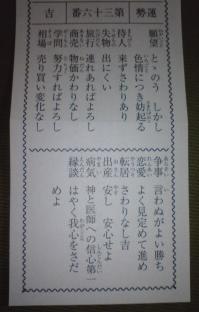 運勢 第三十六番 吉
願望 とゝのう しかし
色情につき妨起る
待人 来ずさわりあり
失物 出にくい
旅行 連れあればよろし
商売 物価かわりなし
学問 努力すればよろし
相場 売り買い変化なし
争事 言わぬがよい勝ち
恋愛 よく見定めて進め
転居 さわりなし吉
出産 安し 安心せよ
病気 神と医師への信心第一
縁談 はやく我心をさだ
めよ